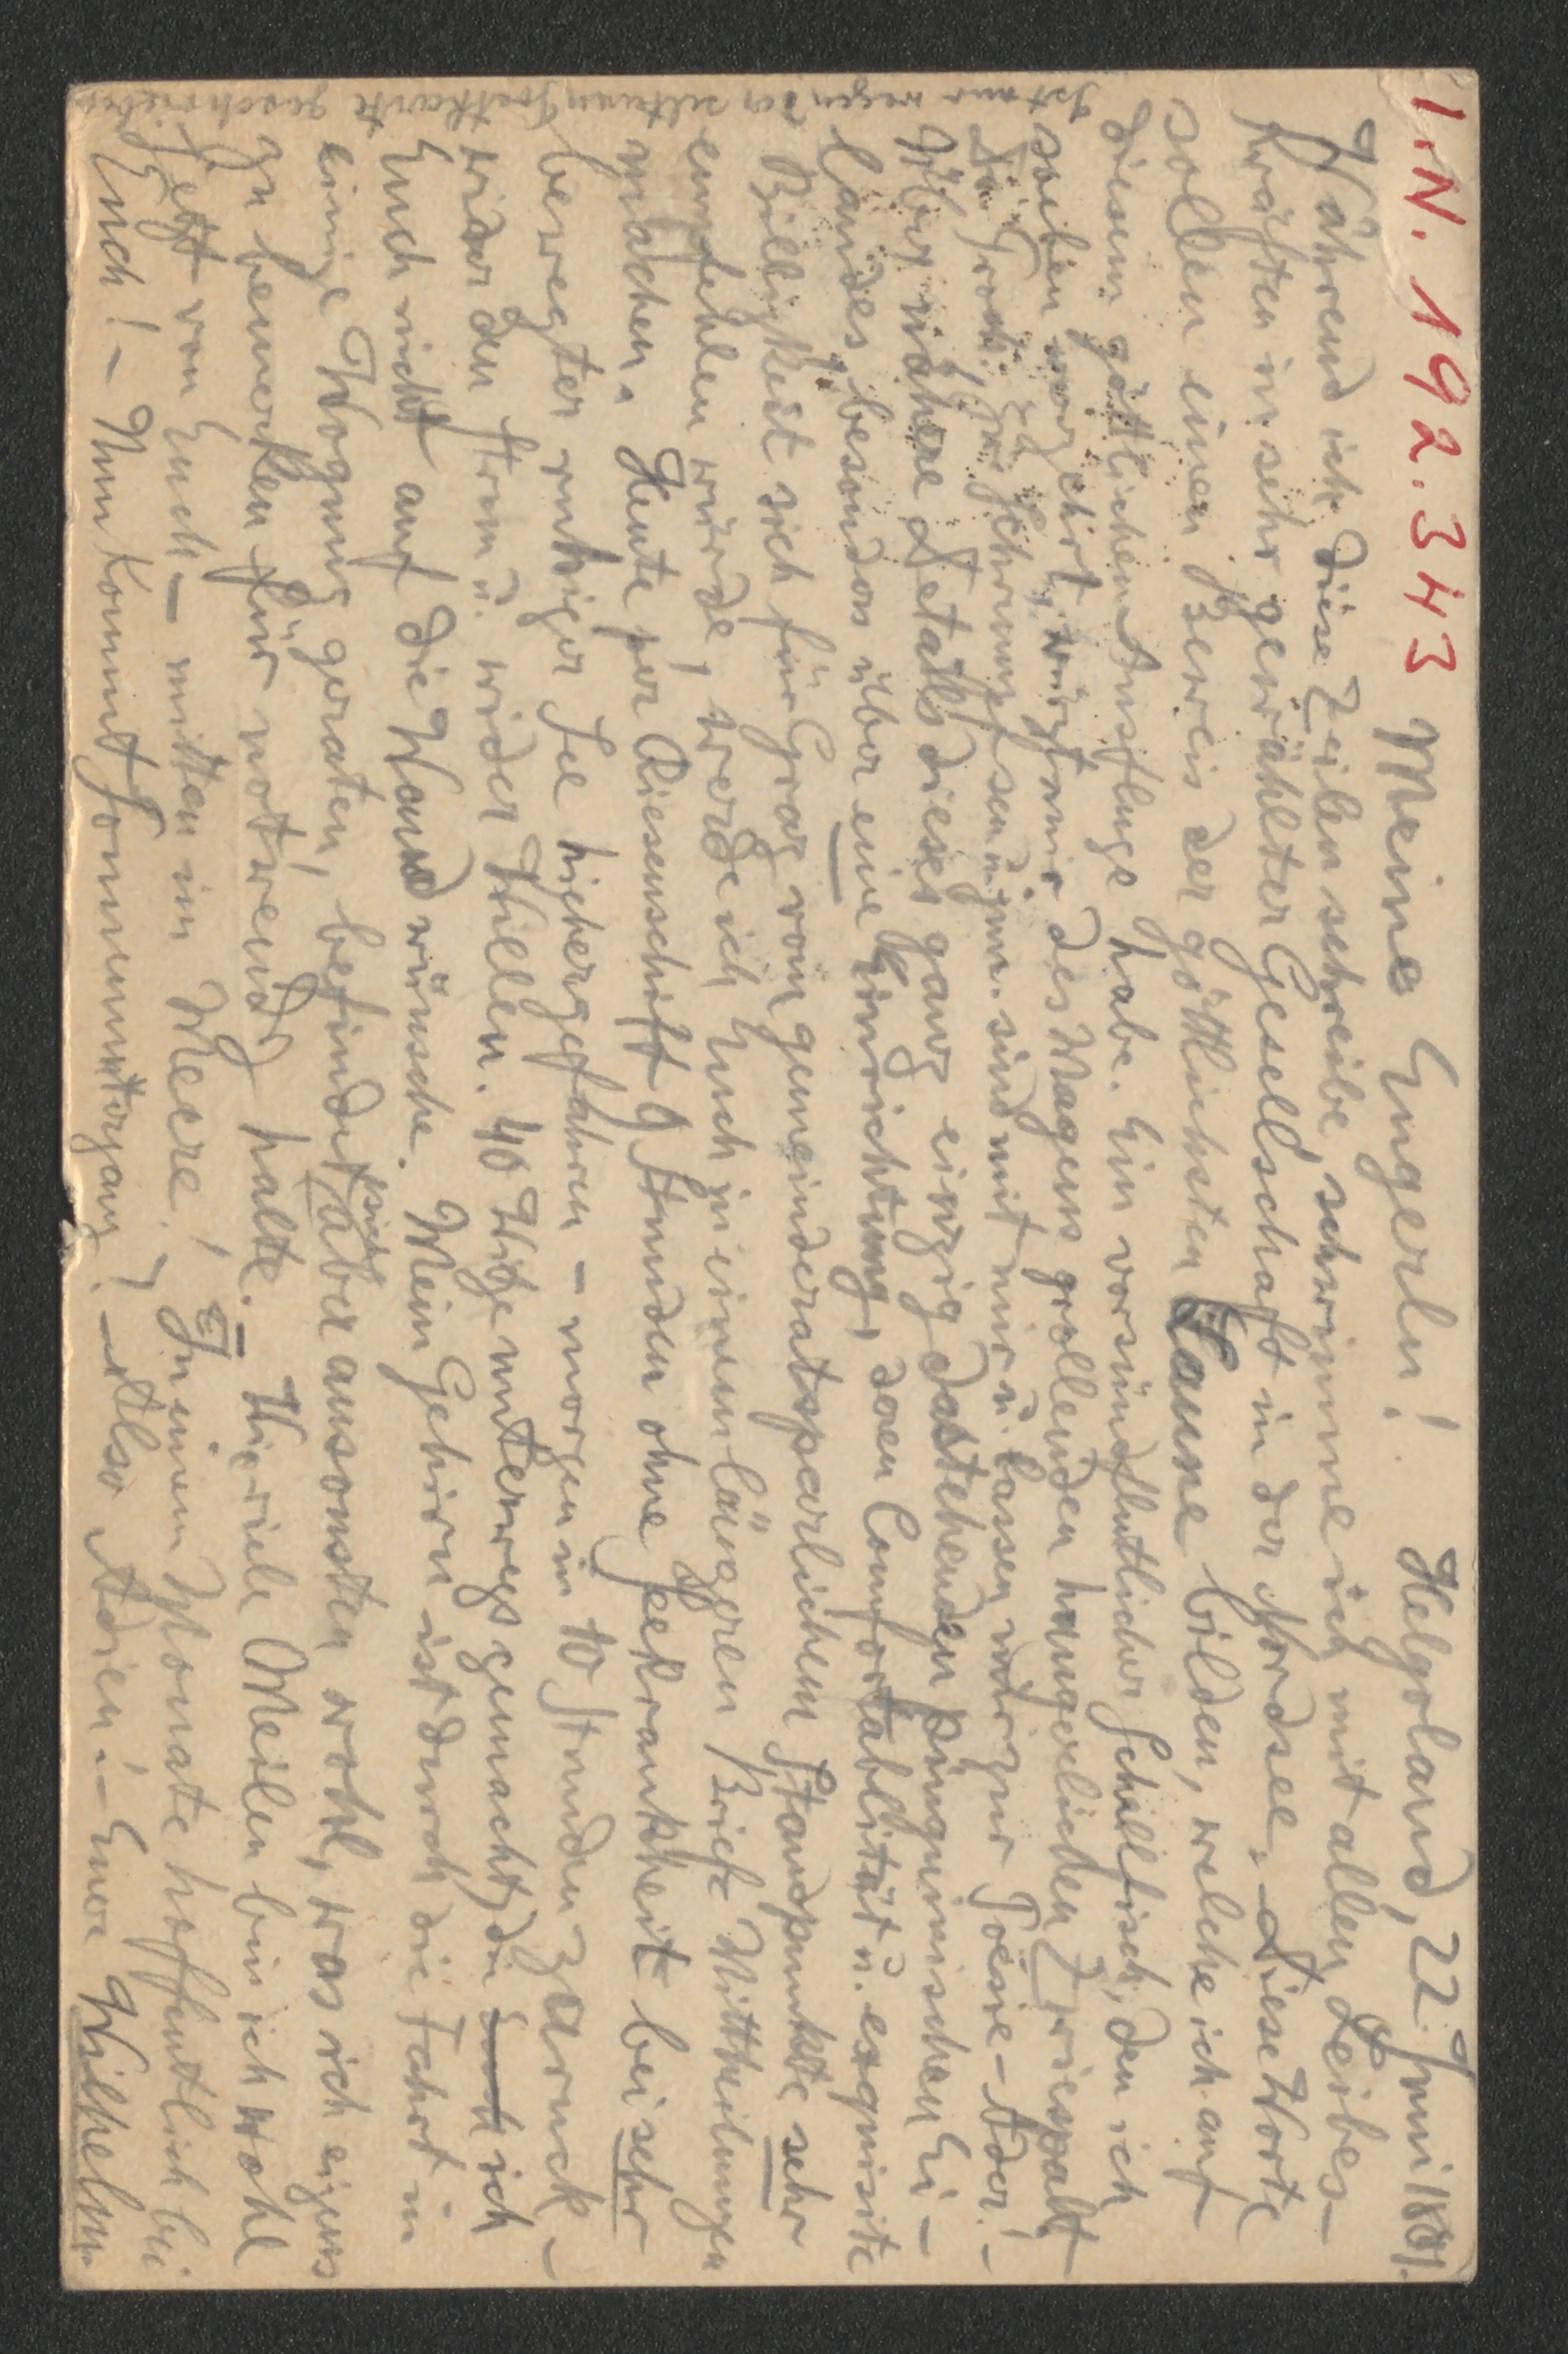 I.N. 192.343
Meine Engerln! Helgoland, 22. Juni 1881.
Während ich diese Zeilen schreibe, schwimme ich mit allen Leibes-
kräften in sehr gewählter Gesellschaft in der Nordsee. Diese Worte
sollen einen Beweis der göttlichsten Laune bilden, welche ich auf
diesem göttlichen Ausfluge habe. Ein vorsündfluthlicher Schellfisch, den ich
soeben , würgt mir des Magens grollenden hungerlichen Zwiespalt
zu sein u. sind mit mir u. lassen mir zur Poesie-Ader! -
Über nähere Details dieses ganz einzig dastehenden pinguinischen Ei-
landes, besonders über eine Einrichtung, deren Comfortablität u. exquisite
Billigkeit sich für Graz vom gemeinderatsparlichem Standpunkte sehr
empfehlen würde, werde ich Euch in einem längeren Briefe Mittheilungen
machen. Heute per Riesenschiff 9 Stunden ohne Seekrankheit bei sehr
bewegter ruhiger See hiehergefahren - morgen in 10 Stunden zurück -
wider den Strom u. wider Willen. 40 Witze unterwegs gemacht, die ich
Euch nicht auf die Wand wünsche. Mein Gehirn ist durch die Fahrt in
einige Wogung geraten, befindet sich aber ansonsten wohl, was ich eigens
zu bemerken für notwendig halte. - Wie viele Meilen bin ich wohl
jetzt von Euch - mitten im Meere! In einem Monate hoffentlich bei
Euch! - Nun kommt Sonnenuntergang! - Also Adieu! - Euer Wilhelm
Ist nur wegen der seltenen Postkarte geschrieben